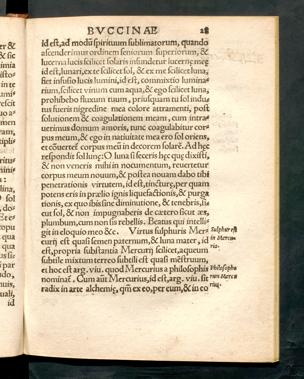 BVCCINAE 28
id est, ad modũ spirituum sublimatorum, quando
ascenderimus ordinem seniorum superiorum, &
lucerna lucis scilicet solaris infundetur lucernę meę
id est, lunari, ex te scilicet sol, & ex me scilicet luna,
est infusio lucis lunari, id est, commixtio lumina
rium, scilicet virium cum aqua, & ego scilicet luna,
prohibebo fluxum tuum, priusquam tu sol indu
tus fueris nigredine mea colore atramenti, post
solutionem & coagulationem meam, cum intra
uerimus domum amoris, tunc coagulabitur cor
pus meum, & ego in uacuitate mea ero sol eriens,
et cõuertet corpus meũ in decorem solarẽ. Ad hęc
respondit sol lunę: O luna si feceris hęc quę dixisti,
& non veneris mihi in nocumentum, reuertetur
corpus meum nouum, & postea nouam dabo tibi
penetrationis virtutem, id est, tincturę, per quam
potens eris in prælio ignis liquefactionis, & purga
tionis, ex quo ibis sine diminutione, & tenebris, si
cut sol, & non impugnaberis de cætero sicut æs,
plumbum, cum non sis rebellis. Beatus qui intelli
git in eloquio meo &c. Virtus sulphuris Mer
curij est quasi semen paternum, & luna mater, id
est, propria substantia Mercurij scilicet, aqueum
subtile mixtum terreo subtili est quasi mẽstruum,
et hoc est arg. viu. quod Mercurius a philosophis
nominať. Cum aũt Mercurius, id est, arg. viu. sit
radix in arte alchemię, qm̃ ex eo, per eum, & in eo
Sulphur est
in Mercu-
rio.
Philosopho
rum Mercu
rius.